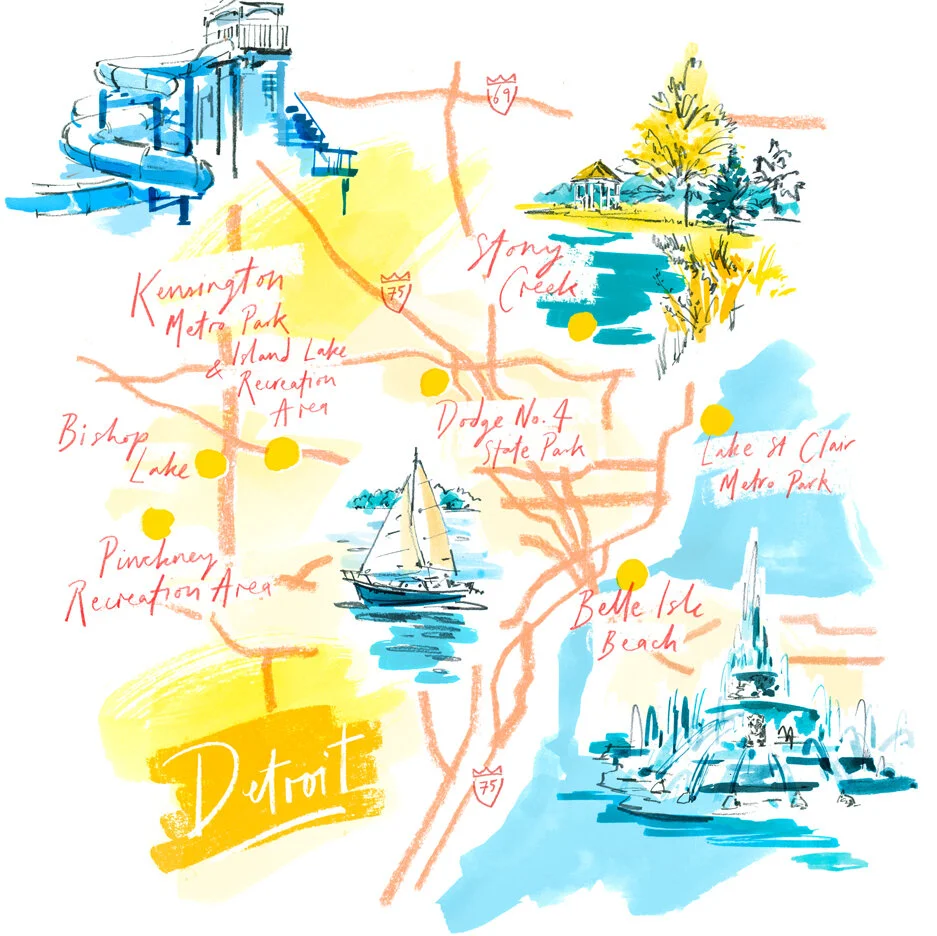 69
Stony
Creek
Kensington
Metro Park
& Island Lake
Recreation
Area
75
Dodge No. 4
State Park
Bishop
Lake
Lake St Clair
Metro Park
Pinckney
Recreation Area
Belle Isle
Beach
Detroit
75